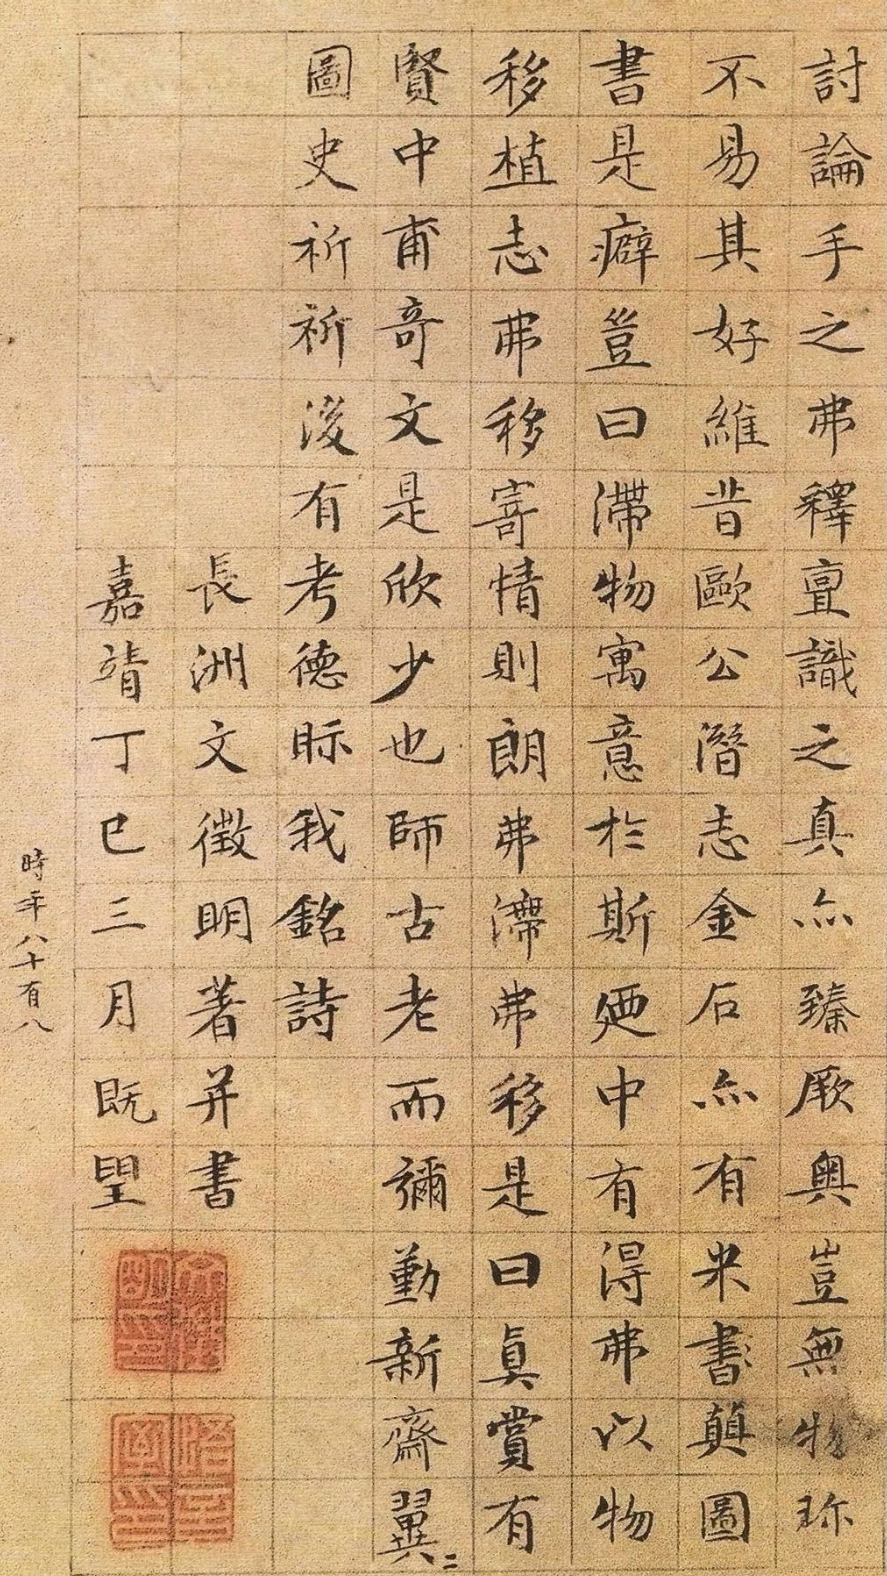 討論手之弗釋亶識之真亦臻厥奧豈無物珎
不易其好維昔歐公潛志金石亦有米書顛圖
書是癖豈曰滯物寓意於斯廼中有得弗以物
移植志弗移寄情則朗弗滯弗移是曰真賞有
賢中甫奇文是欣少也師古老而彌勤新齋翼〻
圖史祈祈後有考德眎我銘詩
長洲文徵明著并書
嘉靖丁巳三月既望
時年八十有八